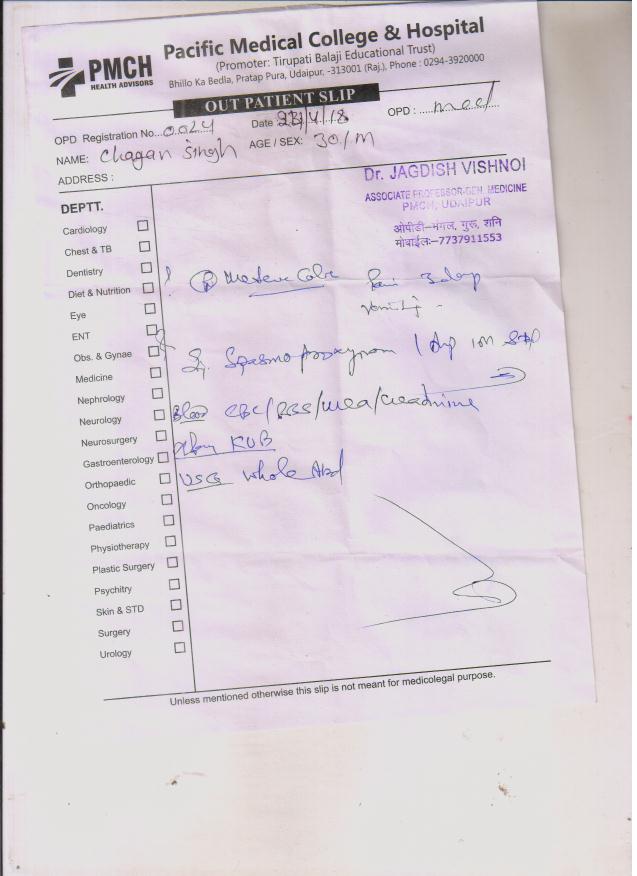 PMCH
HEALTH ADVISORS
Pacific Medical College & Hospital
(Promoter: Tirupati Balaji Educational Trust)
Bhillo Ka Bedla, Pratap Pura, Udaipur, -313001 (Raj.), Phone : 0294-3920000
OUT PATIENT SLIP
OPD Registration No...0024 Date /4/18 OPD : ..... med
NAME: Chagan Singh AGE / SEX: 30/M
ADDRESS :
Dr. JAGDISH VISHNOI
ASSOCIATE PROFESSOR-GEN. MEDICINE
PMCH, UDAIPUR
ओपीडी-मंगल, गुरू, शनि
मोबाईल:-7737911553
DEPTT.
Cardiology
Chest & TB
Dentistry
Diet & Nutrition
Eye
ENT
Obs. & Gynae
Medicine
Nephrology
Neurology
Neurosurgery
Gastroenterology
Orthopaedic
Oncology
Paediatrics
Physiotherapy
Plastic Surgery
Psychitry
Skin & STD
Surgery
Urology
Colic Pain
1 Amp IM
Blood CBC/RBS/Urea/Creatinine
Xray KUB
USG Whole Abd
Unless mentioned otherwise this slip is not meant for medicolegal purpose.